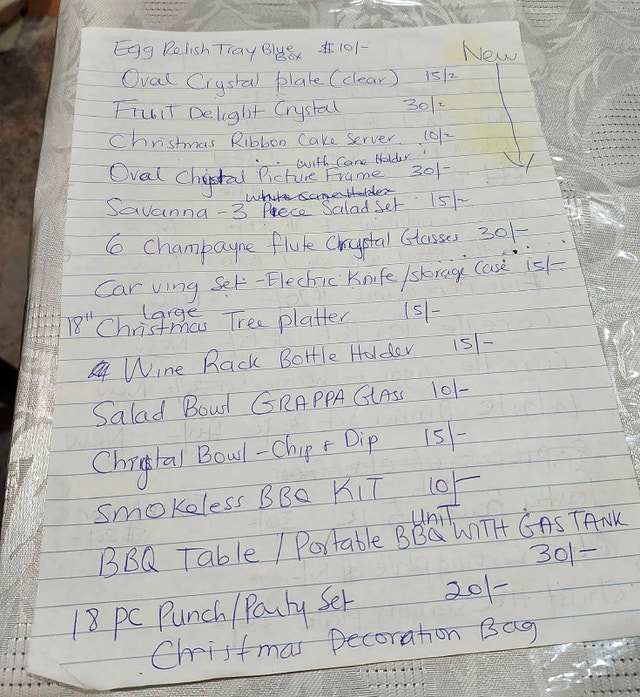 Egg Relish Tray Blue Box $10/-
New
Oval Crystal plate (clear) 15/=
Fruit Delight Crystal 30/=
Christmas Ribbon Cake Server 10/=
with Cane Holder
Oval Chrystal Picture Frame 30/-
Savanna - 3 Piece Salad Set 15/-
6 Champayne flute Chrystal Glasses 30/-
Carving Set - Electric Knife/Storage Case 15/-
large
18" Christmas Tree Platter 15/-
4 Wine Rack Bottle Holder 15/-
Salad Bowl GRAPPA Glass 10/-
Chrystal Bowl - Chip & Dip 15/-
Smokeless BBQ KIT 10/-
UNIT
BBQ Table / Portable BBQ WITH GAS TANK
30/-
18 PC Punch/Party Set 20/-
Christmas Decoration Bag